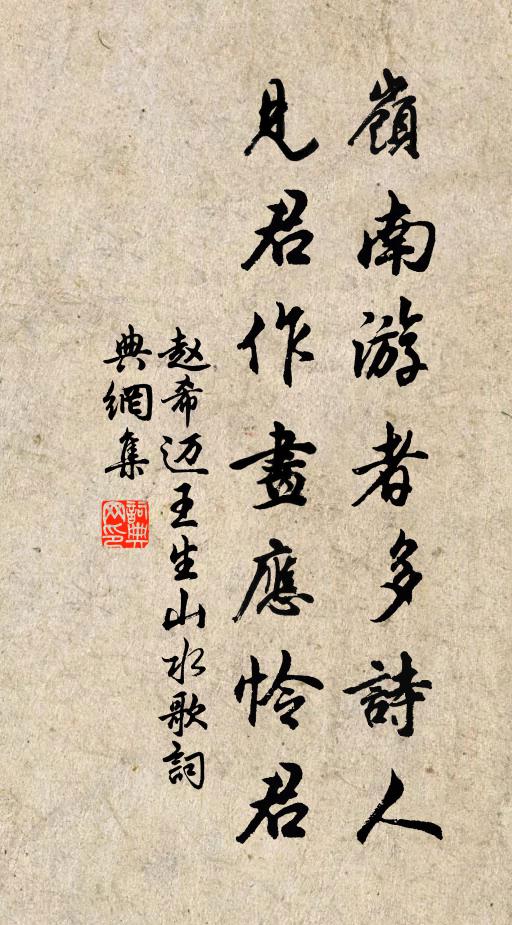 嶺南游者多詩人
見君作畫應怜君
赵希迈王生山水歌詞
典網集
詞典
网印